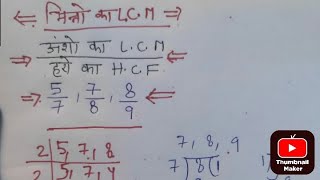 ⇐ भिन्नो का L.C.M ⇒
अंशो का L.C.M
⇒ हरो का H.C.F ⇐
⇒ 5/7, 7/8, 8/9 ⇐
2|5, 7, 8
2|5, 7, 4
7, 8, 9
7
Thumbnail
Maker